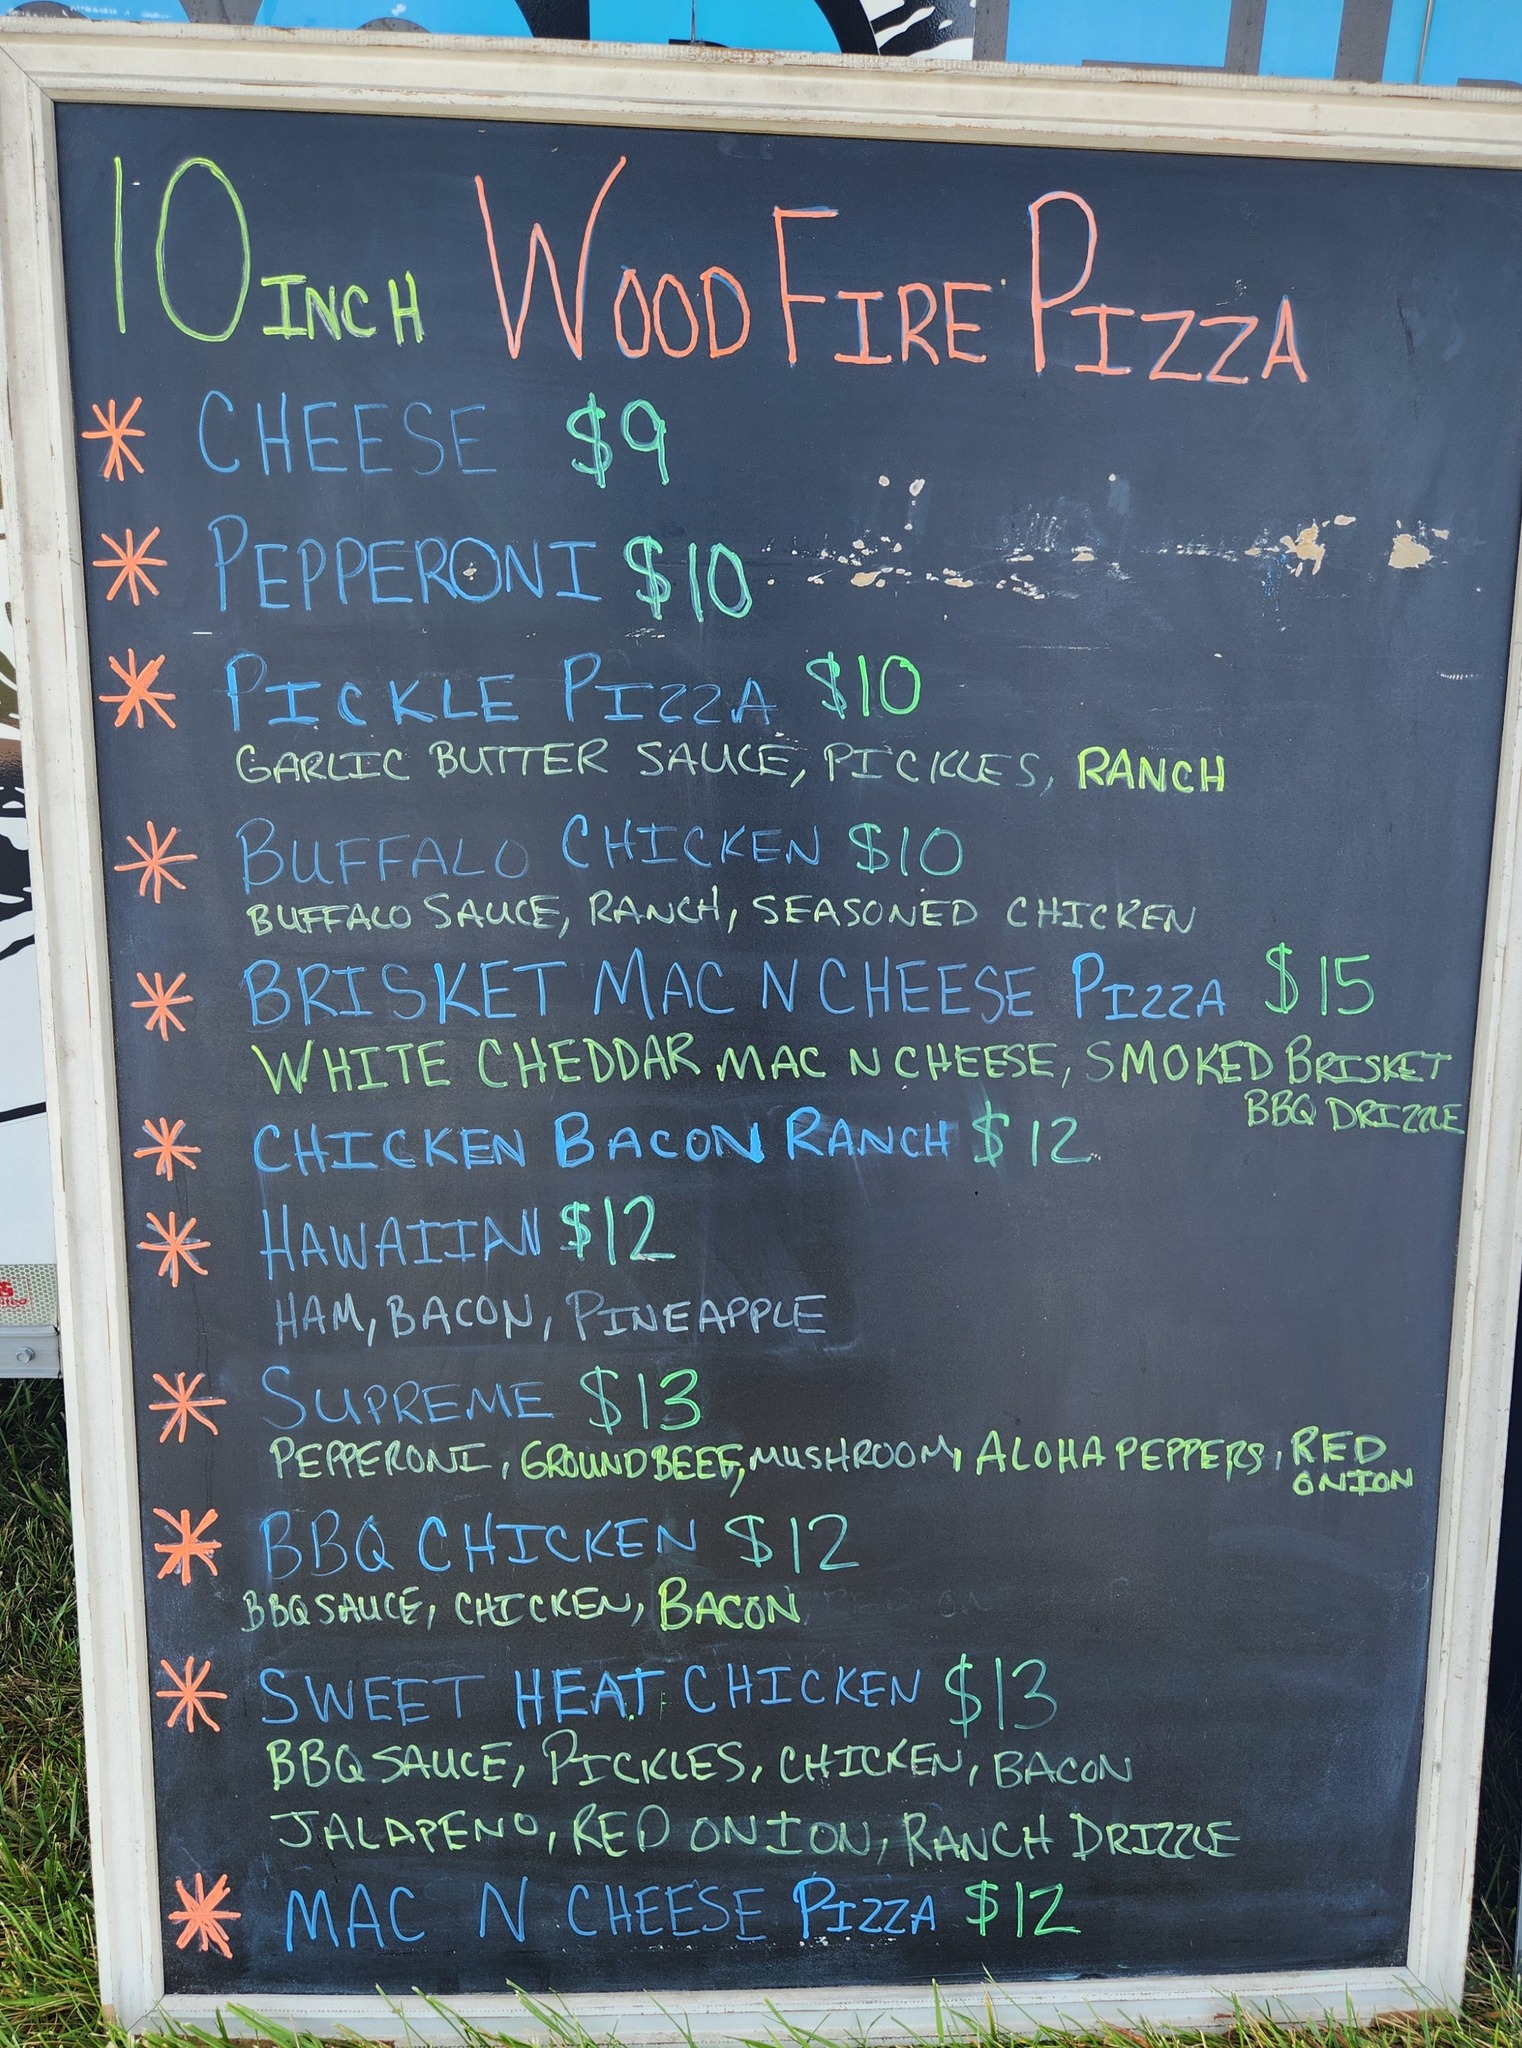 10 INCH WOOD FIRE PIZZA
* CHEESE $9
* PEPPERONI $10
* PICKLE PIZZA $10
GARLIC BUTTER SAUCE, PICKLES, RANCH
* BUFFALO CHICKEN $10
BUFFALO SAUCE, RANCH, SEASONED CHICKEN
* BRISKET MAC N CHEESE PIZZA $15
WHITE CHEDDAR MAC N CHEESE, SMOKED BRISKET
BBQ DRIZZLE
* CHICKEN BACON RANCH $12
* HAWAIIAN $12
HAM, BACON, PINEAPPLE
* SUPREME $13
PEPPERONI, GROUND BEEF, MUSHROOM, ALOHA PEPPERS, RED
ONION
* BBQ CHICKEN $12
BBQ SAUCE, CHICKEN, BACON
* SWEET HEAT CHICKEN $13
BBQ SAUCE, PICKLES, CHICKEN, BACON
JALAPENO, RED ONION, RANCH DRIZZLE
* MAC N CHEESE PIZZA $12